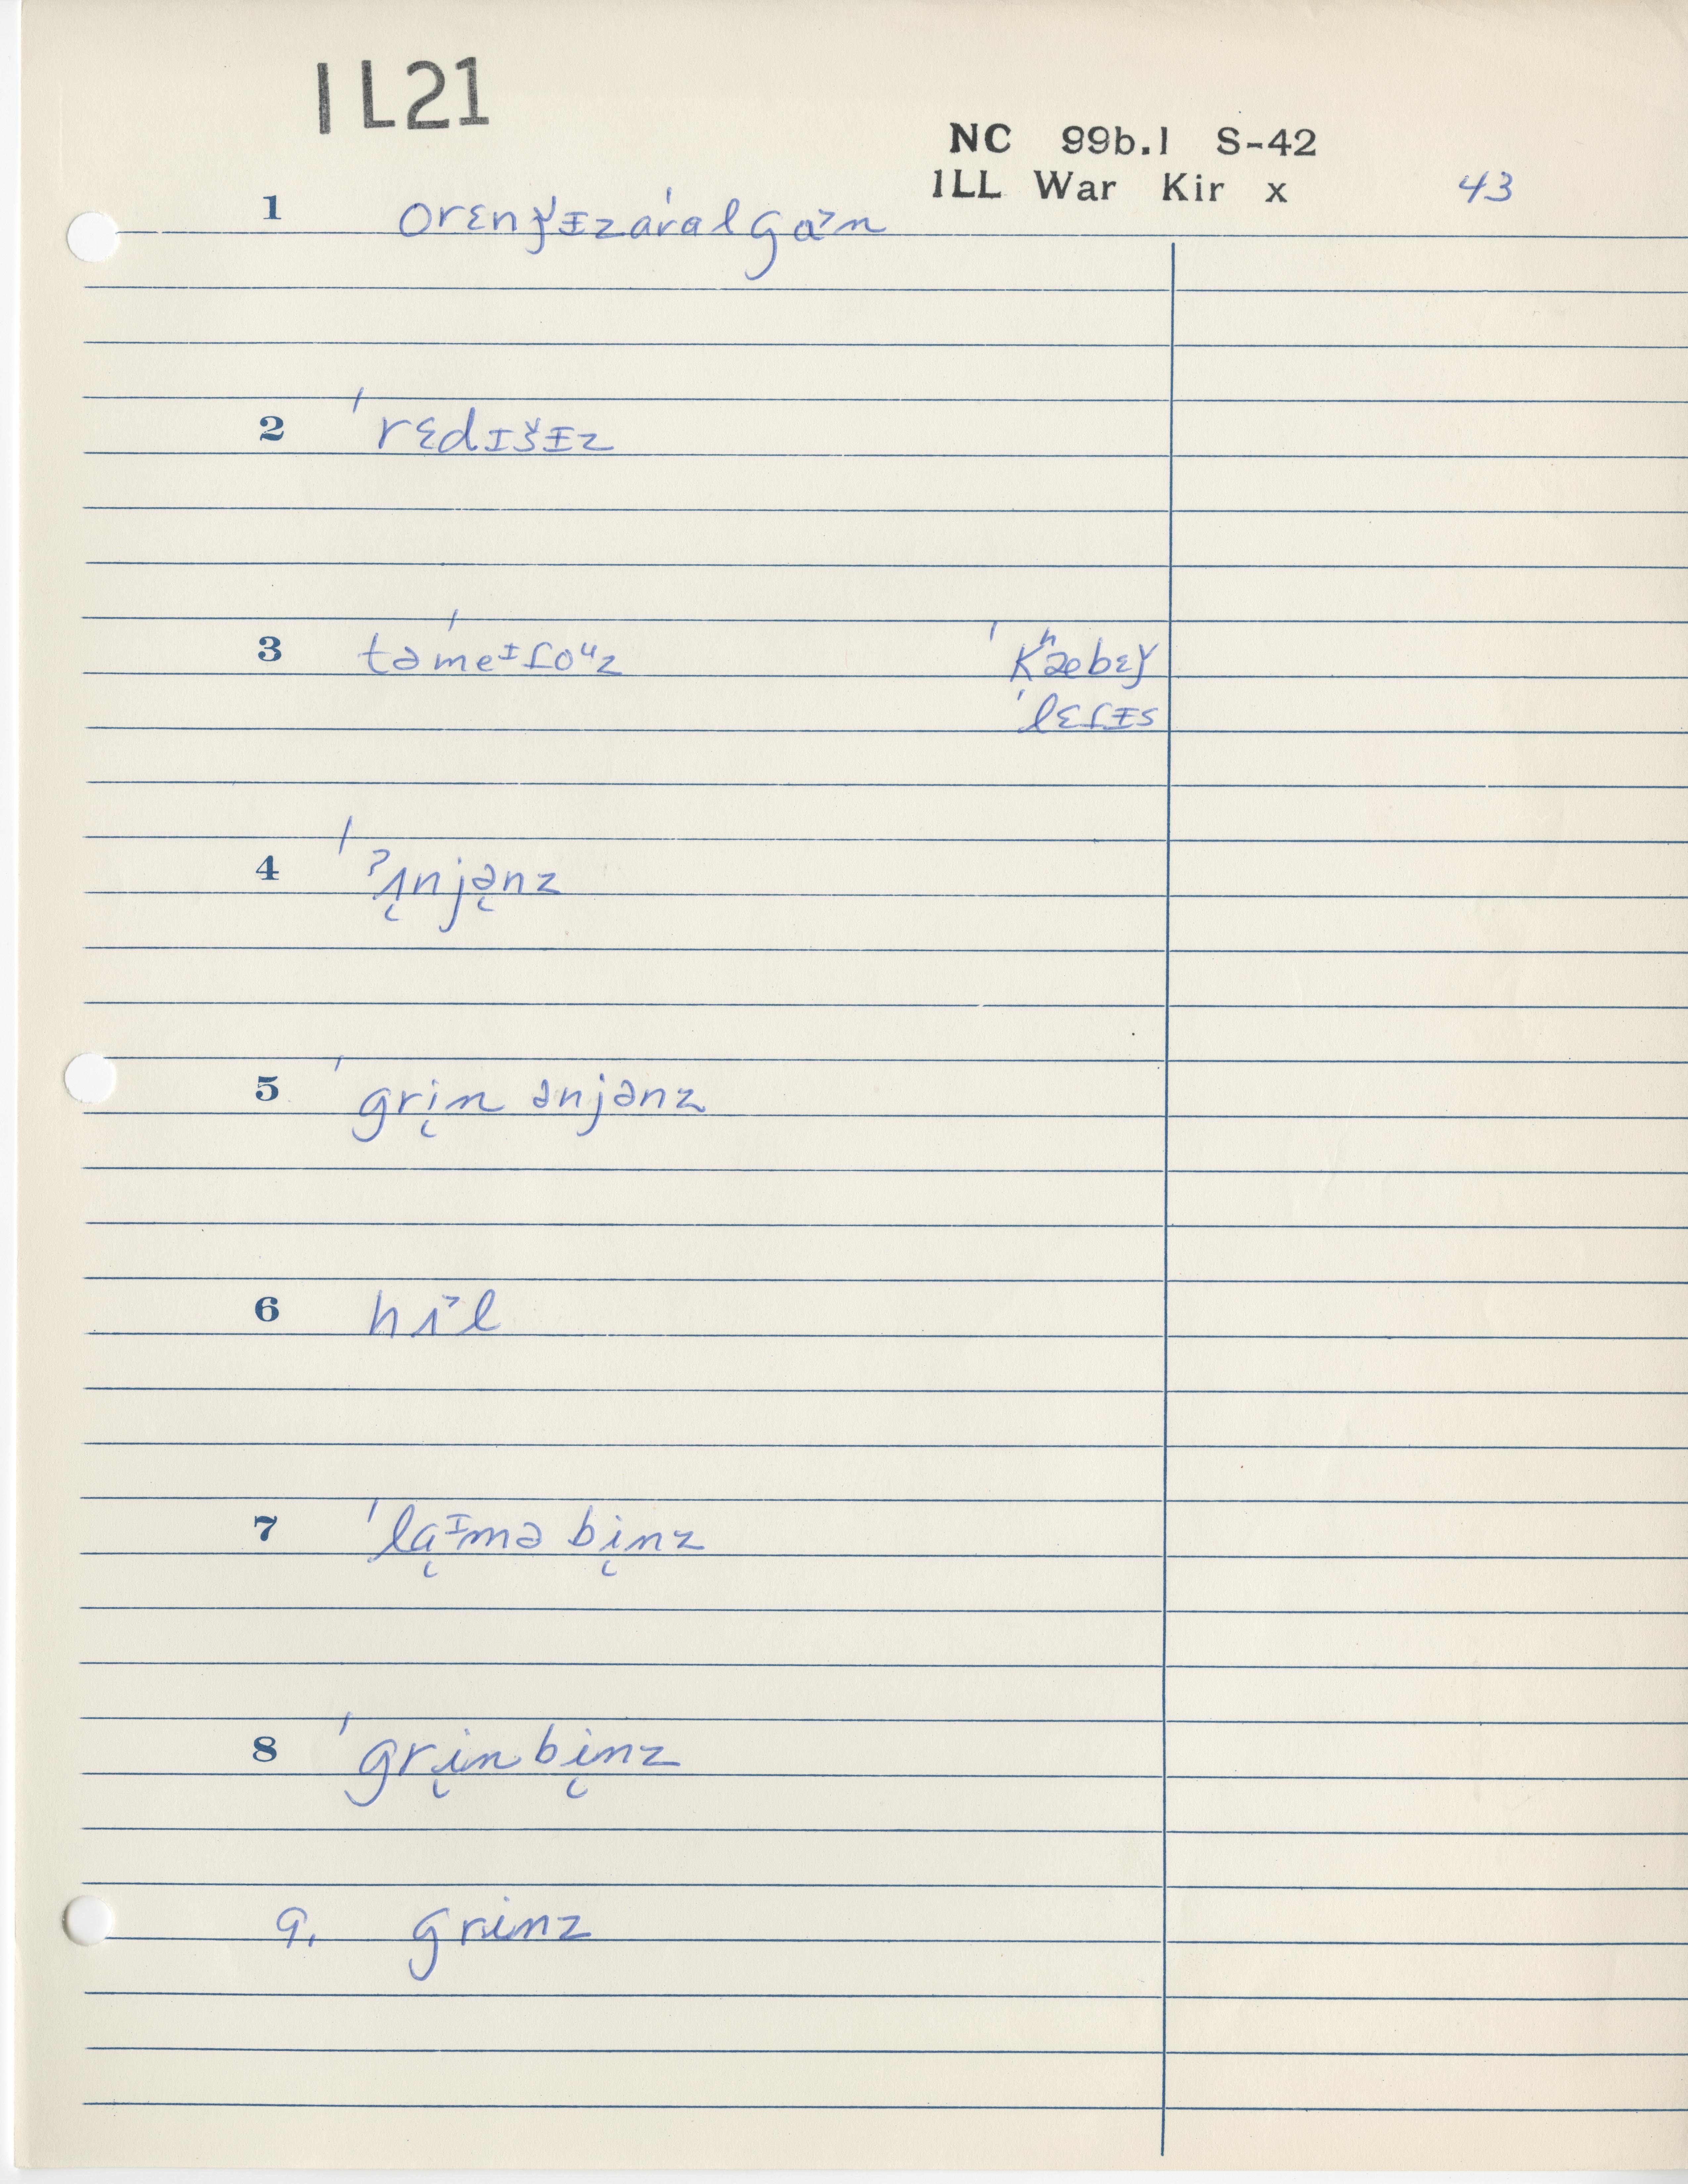 IL21
NC 99b.1 S-42
ILL War Kir x 43
1 orɛnǰᵻzáral gaˇn
2 ˈrɛdɪšᵻz
3 təˈmeᶦfoᵘz ˈkʰæbɛǰ
ˈlɛfᵻs
4 ˈˀʌ̨njə̨nz
5 ˈgrįn ənjənz
6 hɪˇl
7 ˈląᶦmə bįnz
8 ˈgrįnbįnz
9. grinz